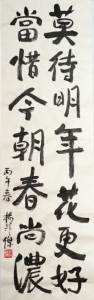 莫待明年花更好
當惜今朝春尚濃
丙午春